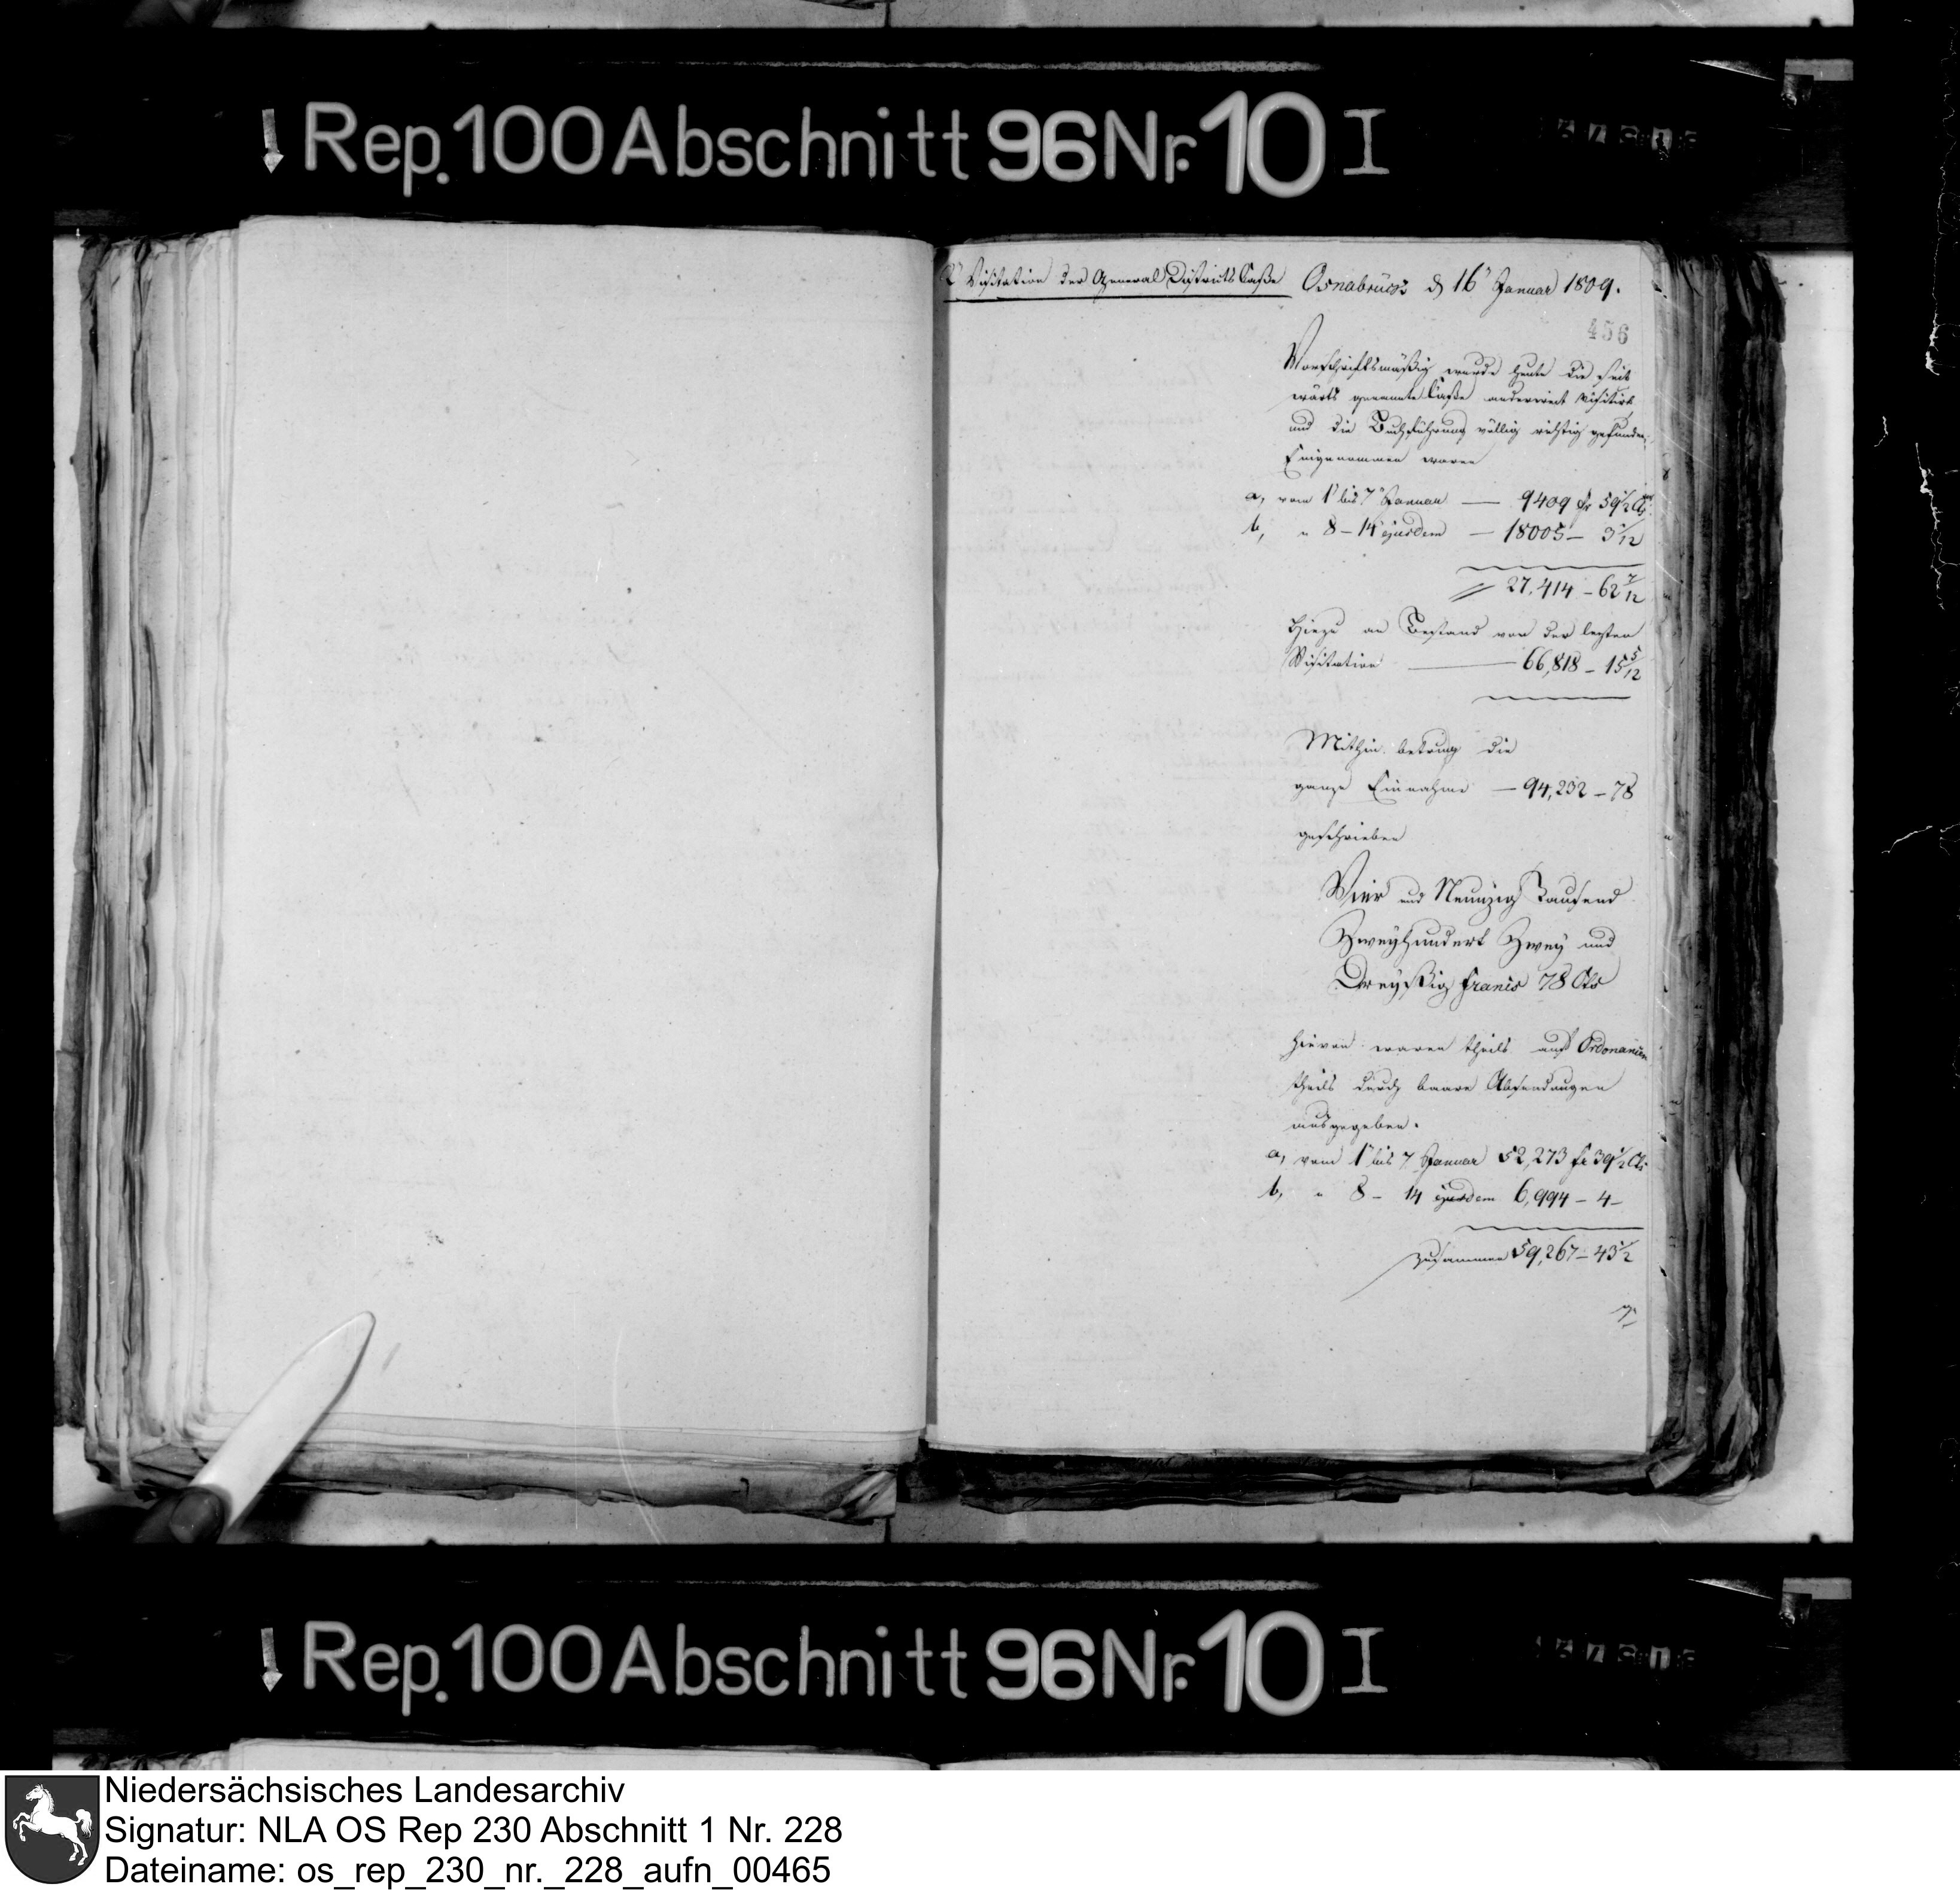 Rep. 100 Abschnitt 96 Nr. 10 I
Visitation der General Districts Caße
Osnabrück d 16 Januar 1809.
456
Vorschriftsmäßig wurde heute die seit
wärts genannte Caße anderweit visitirt
und die Buchführung völlig richtig gefunden.
Eingenommen waren
a, vom 1 bis 7 Januar — 9409 fr 59 1/2 Cts
b, " 8 – 14 ejusdem — 18005 – 3 1/12
27,414 – 62 7/12
Hiezu an Bestand von der letzten
Visitation — 66,818 – 15 5/12
Mithin betrug die
ganze Einnahme — 94,232 – 78
geschrieben
Vier und Neunzig Tausend
Zweyhundert Zwey und
Dreyßig francs 78 Cts
Hievon waren theils auf Ordonanzen
theils durch baare Absendungen
ausgegeben.
a, vom 1 bis 7 Januar 52,273 fr 39 1/2 Cts
b, " 8 – 14 ejusdem 6,994 – 4 –
zusammen 59,267 – 43 1/2
Rep. 100 Abschnitt 96 Nr. 10 I
Niedersächsisches Landesarchiv
Signatur: NLA OS Rep 230 Abschnitt 1 Nr. 228
Dateiname: os_rep_230_nr._228_aufn_00465